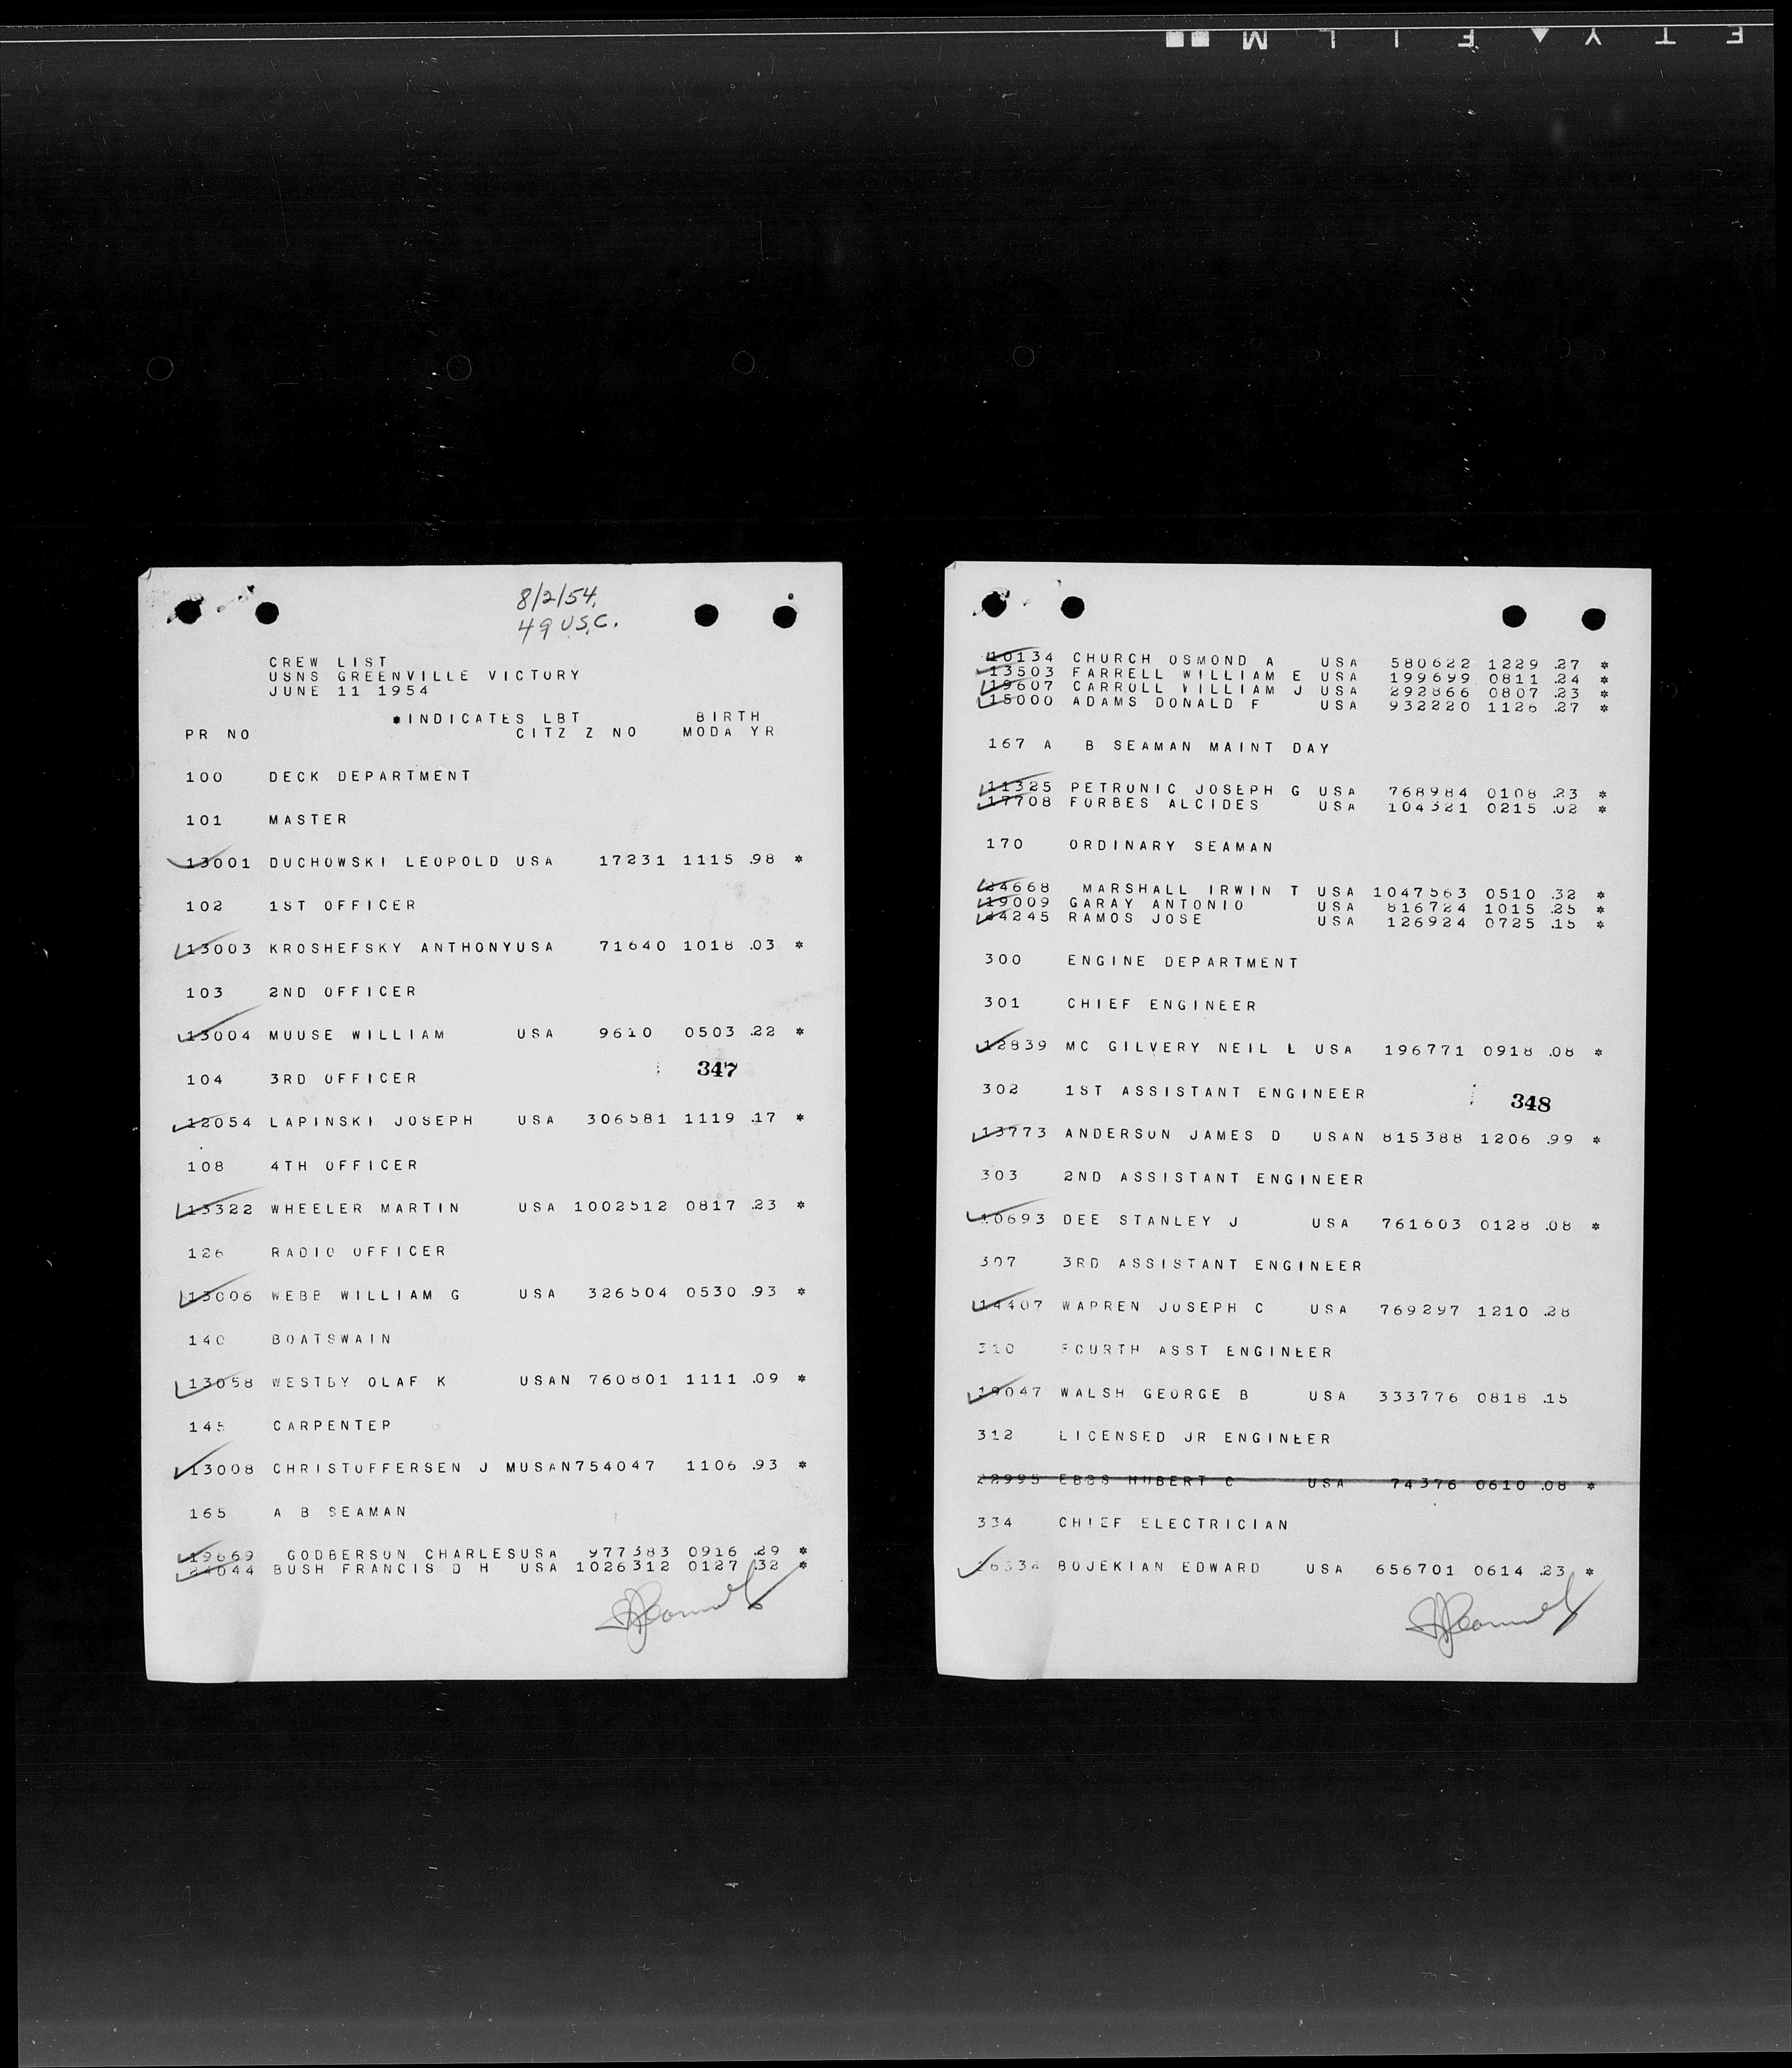 E T Y ▲ F I L M ■■
8/2/54.
49 U.S.C.
CREW LIST
USNS GREENVILLE VICTORY
JUNE 11 1954
*INDICATES LBT BIRTH
PR NO CITZ Z NO MODA YR
100 DECK DEPARTMENT
101 MASTER
13001 DUCHOWSKI LEOPOLD USA 17231 1115 .98 *
102 1ST OFFICER
13003 KROSHEFSKY ANTHONYUSA 71640 1018 .03 *
103 2ND OFFICER
13004 MUUSE WILLIAM USA 9610 0503 .22 *
347
104 3RD OFFICER
12054 LAPINSKI JOSEPH USA 306581 1119 .17 *
108 4TH OFFICER
13322 WHEELER MARTIN USA 1002512 0817 .23 *
126 RADIO OFFICER
13006 WEBB WILLIAM G USA 326504 0530 .93 *
140 BOATSWAIN
13058 WESTBY OLAF K USAN 760801 1111 .09 *
145 CARPENTER
13008 CHRISTOFFERSEN J MUSAN754047 1106 .93 *
165 A B SEAMAN
19669 GODBERSON CHARLESUSA 977383 0916 .29 *
24044 BUSH FRANCIS D H USA 1026312 0127 .32 *
10134 CHURCH OSMOND A USA 580622 1229 .27 *
13503 FARRELL WILLIAM E USA 199699 0811 .24 *
19607 CARROLL WILLIAM J USA 292866 0807 .23 *
15000 ADAMS DONALD F USA 932220 1126 .27 *
167 A B SEAMAN MAINT DAY
11325 PETRONIC JOSEPH G USA 768984 0108 .23 *
17708 FORBES ALCIDES USA 104321 0215 .02 *
170 ORDINARY SEAMAN
24668 MARSHALL IRWIN T USA 1047563 0510 .32 *
19009 GARAY ANTONIO USA 816724 1015 .25 *
14245 RAMOS JOSE USA 126924 0725 .15 *
300 ENGINE DEPARTMENT
301 CHIEF ENGINEER
12839 MC GILVERY NEIL L USA 196771 0918 .08 *
302 1ST ASSISTANT ENGINEER
348
13773 ANDERSON JAMES D USAN 815388 1206 .99 *
303 2ND ASSISTANT ENGINEER
10693 DEE STANLEY J USA 761603 0128 .08 *
307 3RD ASSISTANT ENGINEER
14407 WARREN JOSEPH C USA 769297 1210 .28
310 FOURTH ASST ENGINEER
19047 WALSH GEORGE B USA 333776 0818 .15
312 LICENSED JR ENGINEER
22995 EBBS HUBERT C USA 74376 0610 .08 *
334 CHIEF ELECTRICIAN
16334 BOJEKIAN EDWARD USA 656701 0614 .23 *